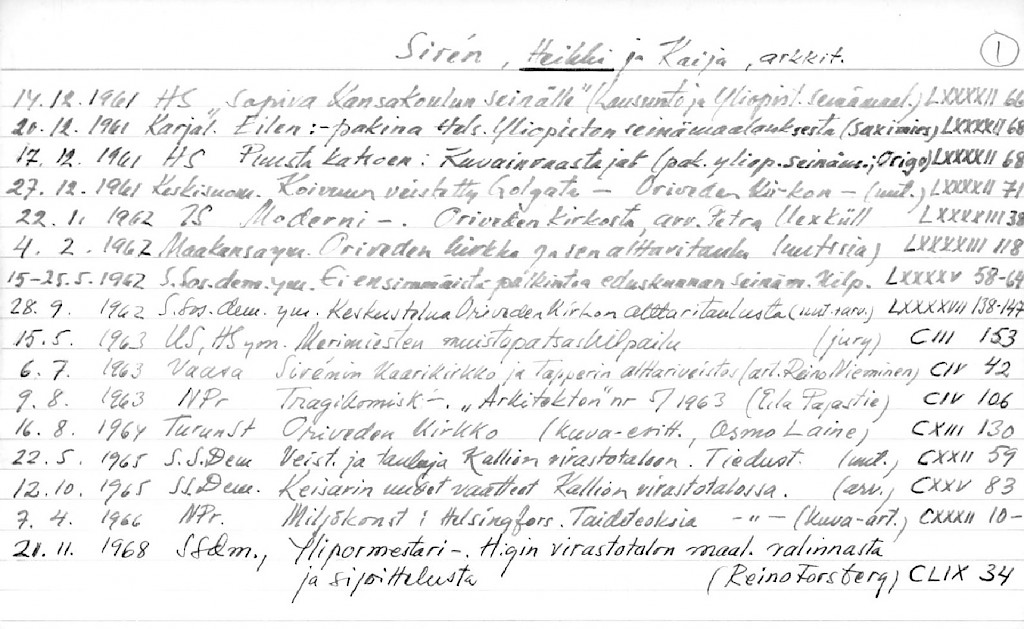 Sirén, Heikki ja Kaija, arkkit. 1
14.12.1961 HS "Sopiva Kansakoulun seinälle" (Lausunto ja Yliopist. seinämaal.) LXXXXII 66
20.12.1961 Karjal. Eilen :- pakina Hels. Yliopiston seinämaalauksesta (Saximies) LXXXXII 68
17.12.1961 HS Puusta katsoen: Kuvainraastajat (pak. yliop. seinäm.; Origo) LXXXXII 68
27.12.1961 Keskisuom. Koivuun veistetty Golgata - Oriveden kirkon - (uut.) LXXXXII 71
22.1.1962 US Moderni -. Oriveden kirkosta, arv. Petra Uexküll LXXXXIII 38
4.2.1962 Maakansa ym. Oriveden kirkko ja sen alttaritaulu (uutisia) LXXXXIII 118
15-25.5.1962 S.Sos.dem. ym. Ei ensimmäistä palkintoa eduskunnan seinäm. kilp. LXXXXV 58-64
28.9.1962 S.Sos.dem. ym. Keskustelua Oriveden kirkon alttaritaulusta (uut. arv.) LXXXXVII 138-147
15.5.1963 US, HS ym. Merimiesten muistopatsaskilpailu (jury) CIII 153
6.7.1963 Vaasa Sirénin kaarikirkko ja Tapperin alttariveistos (art. Reino Nieminen) CIV 42
9.8.1963 NPr Tragikomisk -. "Arkitekton" nr 5/1963 (Eila Pajastie) CIV 106
16.8.1964 TurunSt Oriveden kirkko (kuva-eritt., Osmo Laine) CXIII 130
22.5.1965 S.S.Dem Veist. ja tauluja Kallion virastotaloon. Tiedust. (uut.) CXXII 59
12.10.1965 SS.Dem. Keisarin uudet vaatteet Kallion virastotalossa. (arv.) CXXV 83
7.4.1966 NPr. Miljökonst i Helsingfors. Taideteoksia -"- (kuva-art.) CXXXII 10-
21.11.1968 SSdm., Ylipormestari -. H:gin virastotalon maal. valinnasta
ja sijoittelusta (Reino Forsberg) CLIX 34